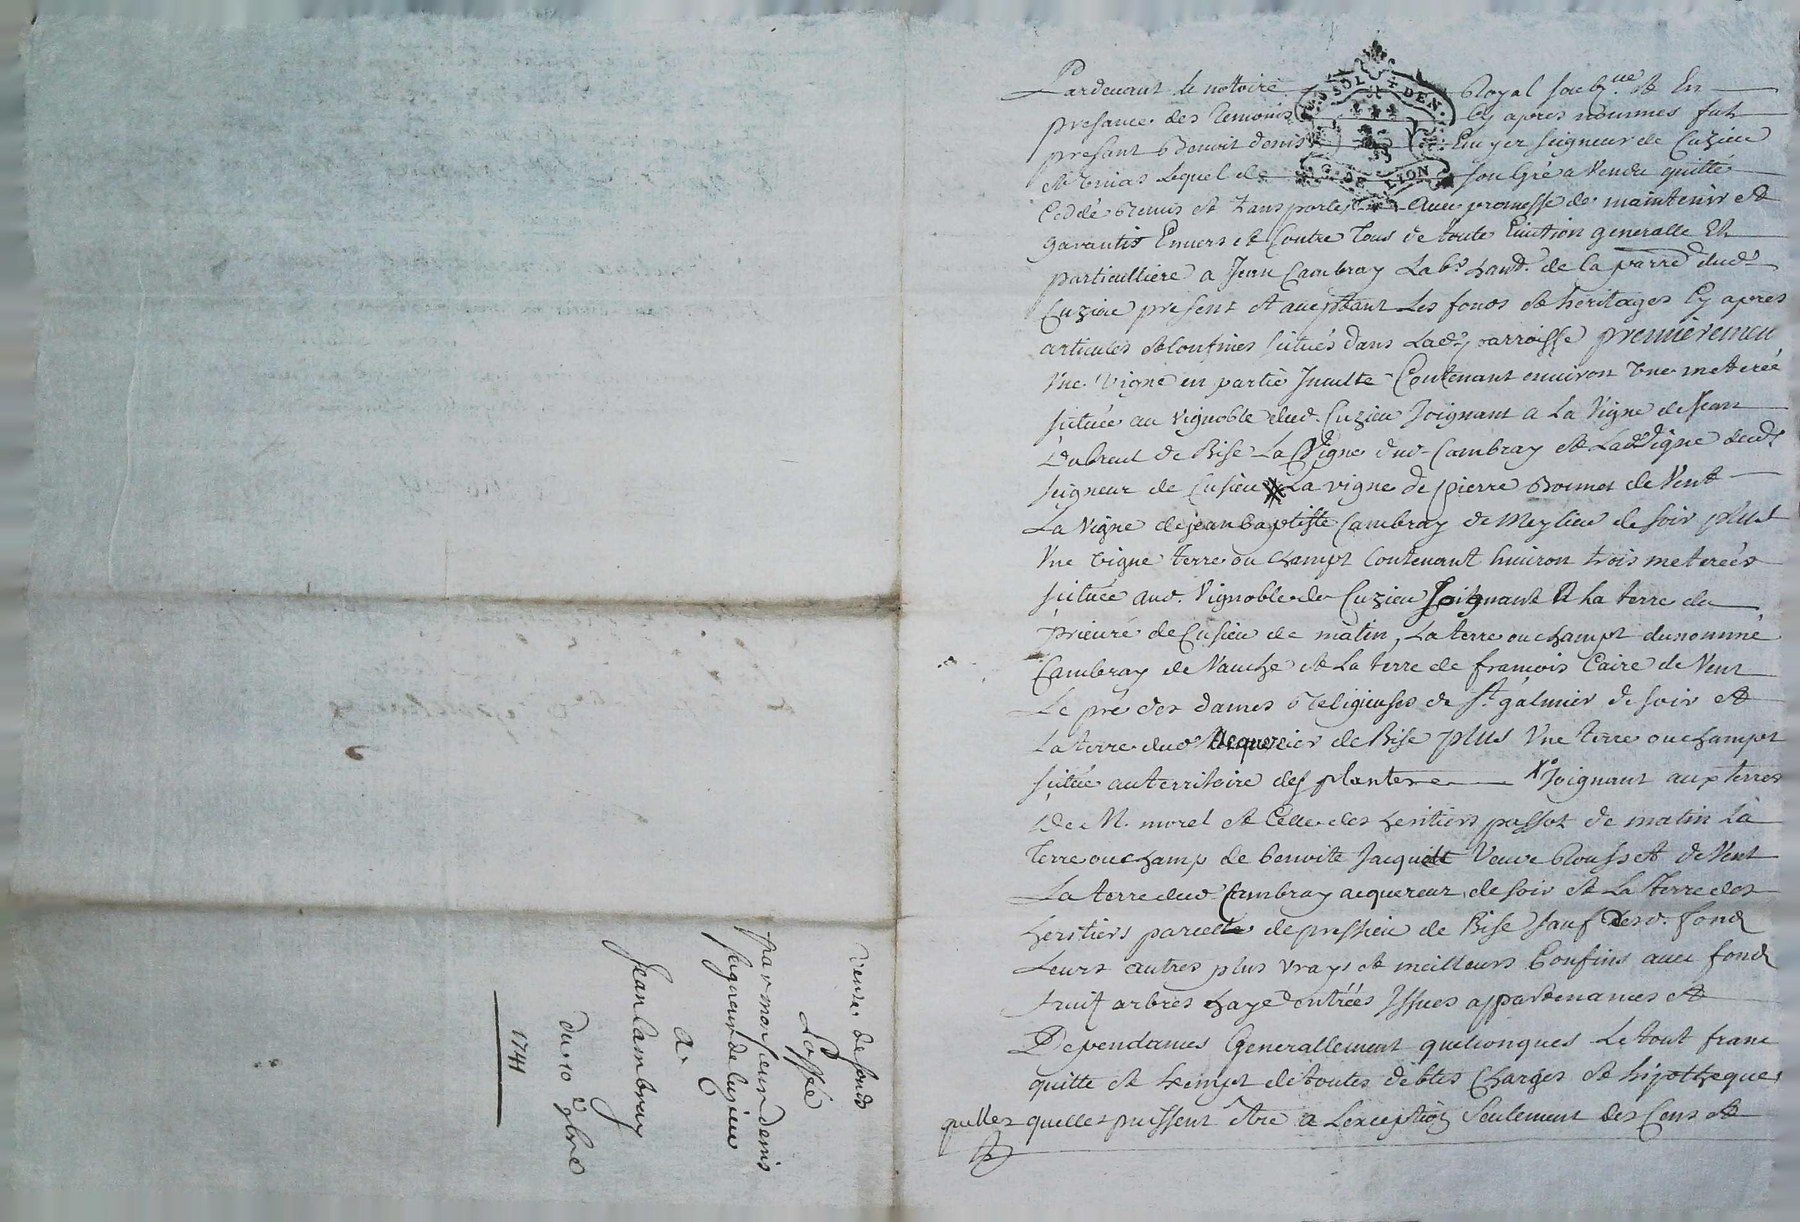 Pardevant le nottaire Royal soubz.ne et En
presance des temoins cy apres nommes fut
presant Benoit denis Ecuyer seigneur de Cuzieu
et Unias lequel de son Gré a Vendu quitté
Ceddé Remis et transporté avec promesse de maintenir et
garantir Envers et Contre Tous de toute Eviction generalle Et
particulliere a Jean Cambray Lab.r hant. de la parre dud.
Cuzieu present et acceptant Les fonds et heritages Cy apres
articulés et Confines scitués dans Lad. parroisse premieremen
Une Vigne en partie Inculte Contenant environ Une meterée
scituée au vignoble dud. Cuzieu Joignant a La Vigne de Jean
Dubreul de Bise La Vigne dud. Cambray et Lad. Vigne dud.
seigneur de Cusieu # La vigne de pierre Bonnet de Vent
La Vigne de jean baptiste Cambray de Meylieu de soir plus
Une vigne terre ou champt Contenant huiron trois meterées
scituée aud. Vignoble de Cuzieu Joignant A La terre du
prieuré de Cusieu de matin, La terre ou champt du nommé
Cambray de Vauche et La terre de francois Caire de Vent
Le pre des dames Religieuses de St. galmier de soir et
La terre dud. Acquereur de Bise plus Une terre ou champt
scituée au territoire des plantere X Joignant aux terres
De M. morel et Celle des heritiers passot de matin La
Terre ou champ de benoite Jacquett Veuve Rousset de Vent
La terre dud. Cambray acquereur de soir et La Terre des
heritiers parcelle de pressieu de Bise sauf Desd. fond
Leurs autres plus vrays et meilleurs Confins avec fond
fruit arbres haye entrées Issues appartenances et
Dependances Generallement quelconques Le tout franc
quitte et Exempt de toutes debtes Charges et hipotheques
quelles quelles puissent être a Lexception Seulement des Cens et
SOL DEN
G. DE LION
Vente de fonds
passée
par monsieur denis
seigneur de Cuzieu
a
Jean Cambray
du 10 9bre
1741